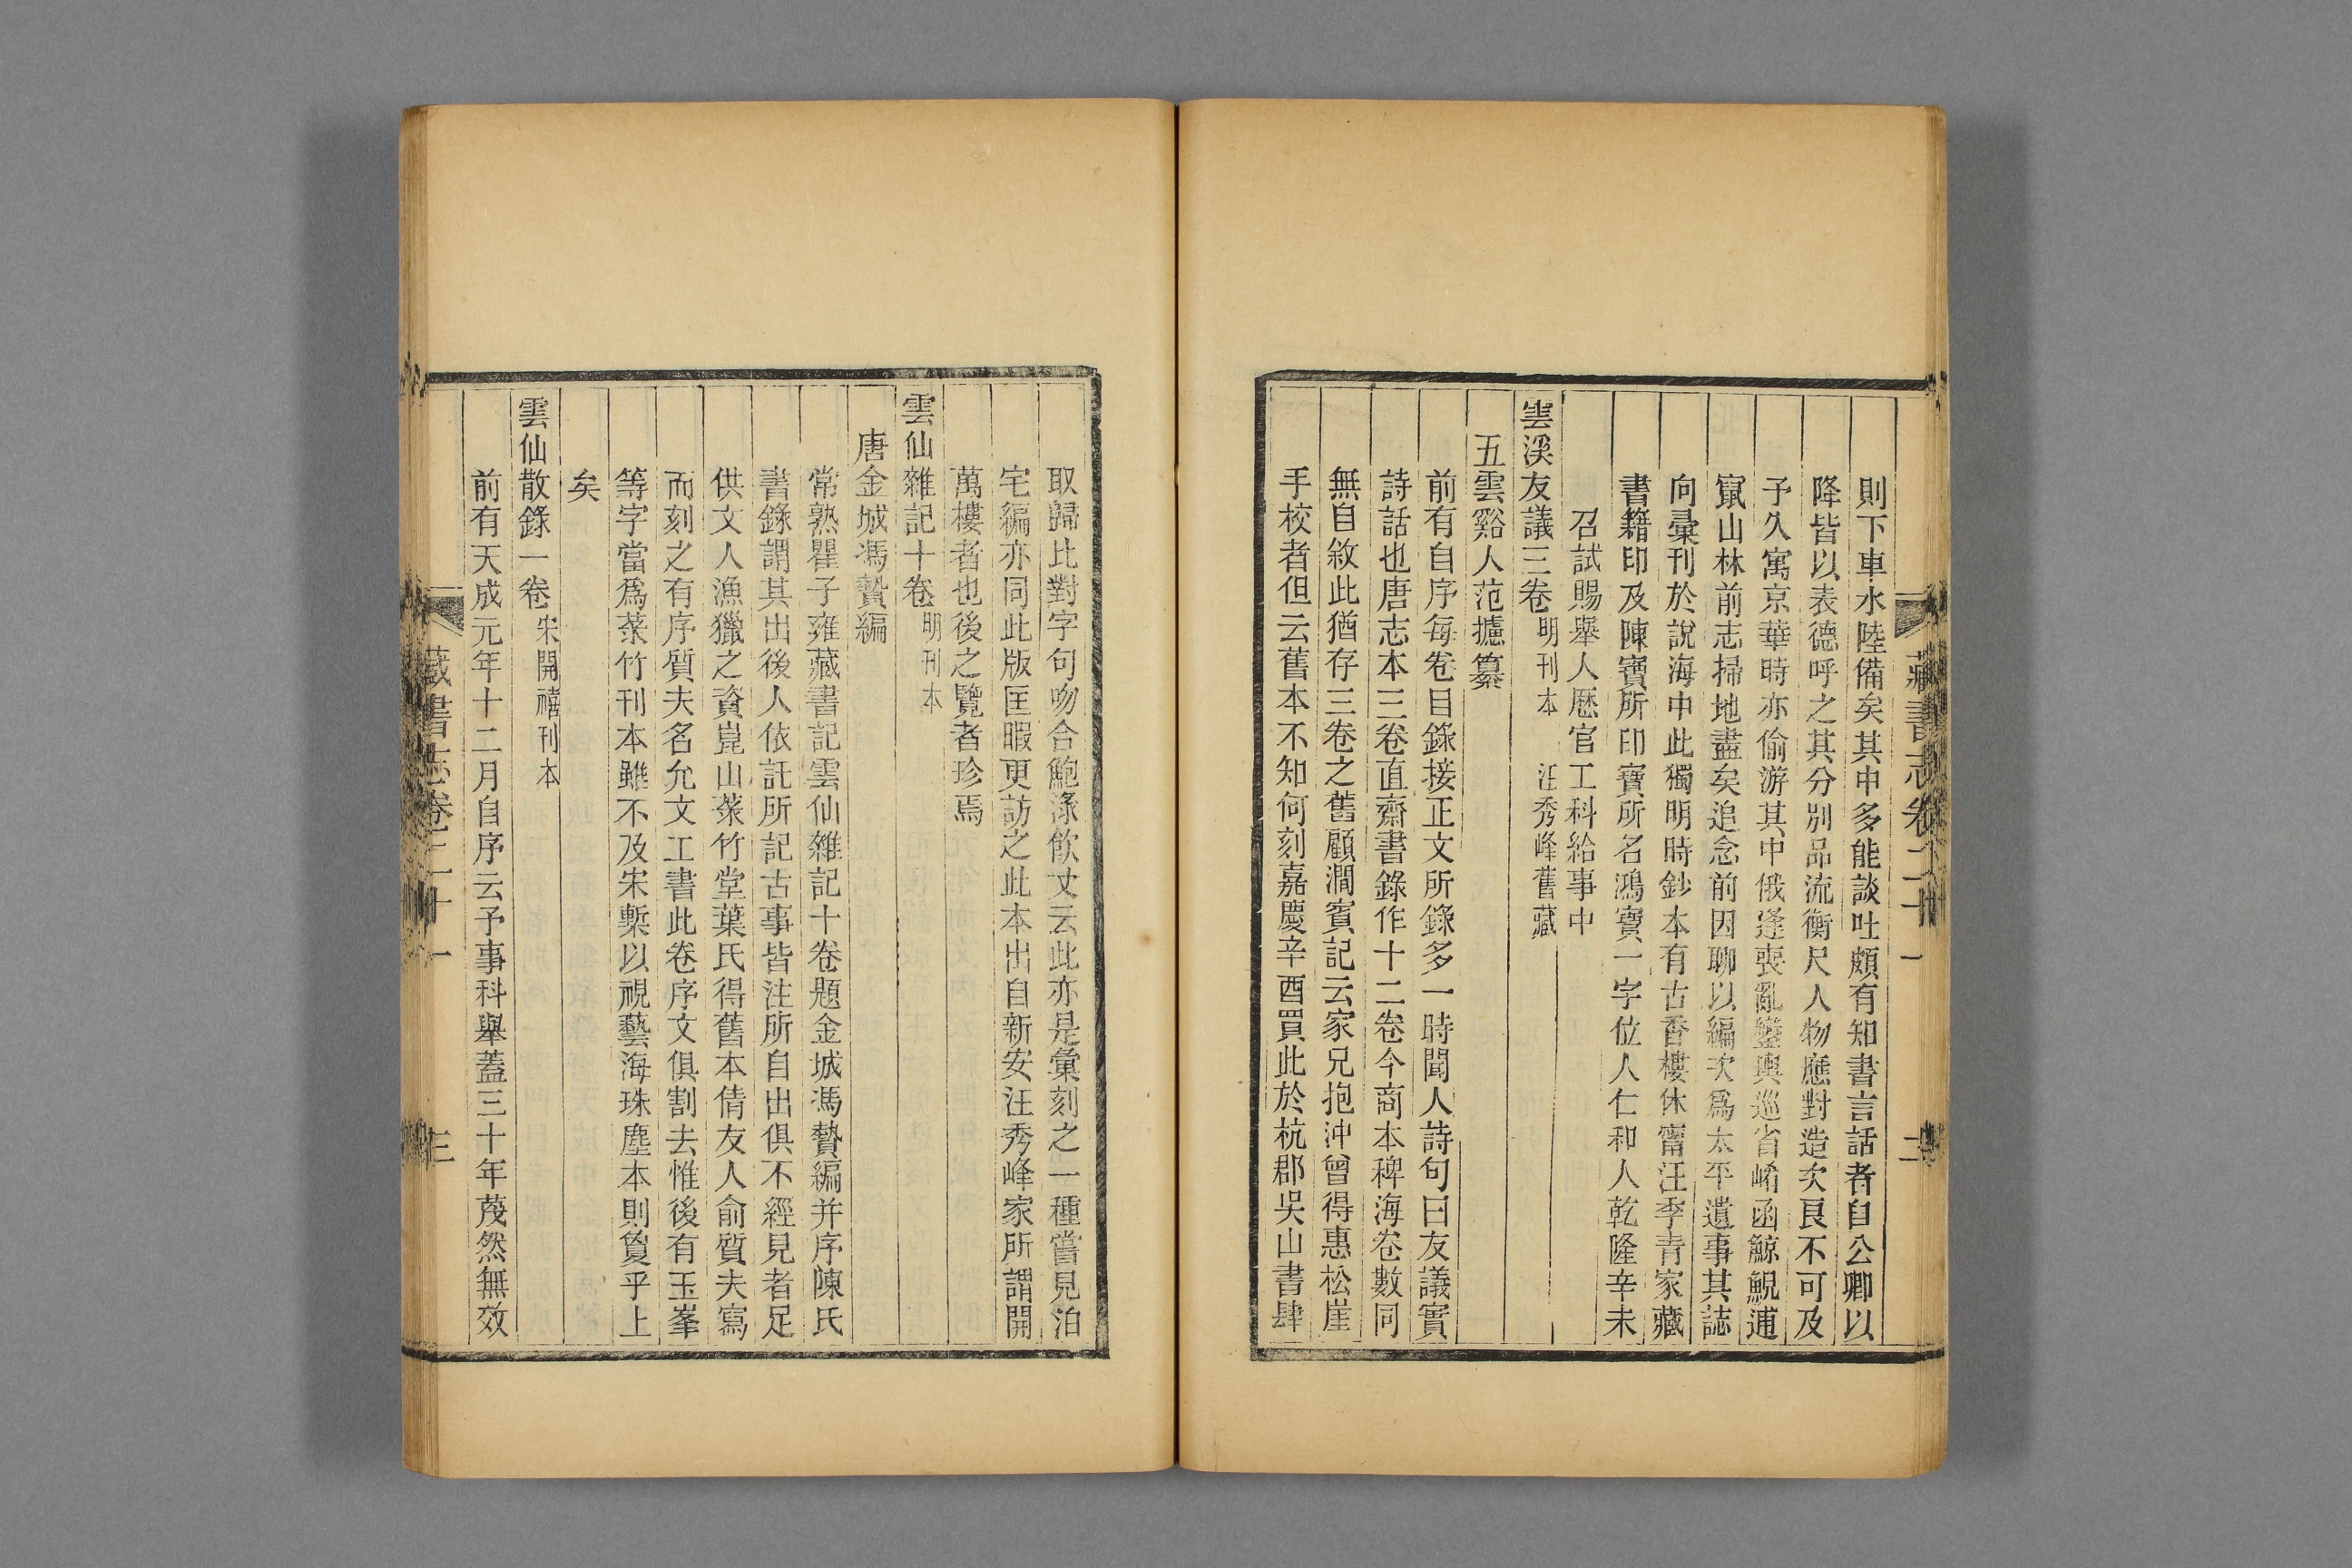 藏書志卷二十一
二
則下車水陸備矣其中多能談吐頗有知書言話者自公卿以
降皆以表德呼之其分別品流衡尺人物應對造次良不可及
予久寓京華時亦偷游其中俄逢喪亂鑾輿巡省崤函鯨鯢逋
竄山林前志掃地盡矣追念前因聊以編次爲太平遺事其誌
向彙刊於說海中此獨明時鈔本有古香樓休甯汪季青家藏
書籍印及陳寶所印寶所名鴻寶一字位人仁和人乾隆辛未
召試賜舉人歷官工科給事中
雲溪友議三卷 明刊本 汪秀峰舊藏
五雲谿人范攄纂
前有自序每卷目錄接正文所錄多一時聞人詩句曰友議實
詩話也唐志本三卷直齋書錄作十二卷今商本稗海卷數同
無自敘此猶存三卷之舊顧澗賓記云家兄抱沖曾得惠松崖
手校者但云舊本不知何刻嘉慶辛酉買此於杭郡吳山書肆
取歸比對字句吻合鮑淥飲丈云此亦是彙刻之一種嘗見泊
宅編亦同此版匡暇更訪之此本出自新安汪秀峰家所謂開
萬樓者也後之覽者珍焉
雲仙雜記十卷 明刊本
唐金城馮贄編
常熟瞿子雍藏書記雲仙雜記十卷題金城馮贄編并序陳氏
書錄謂其出後人依託所記古事皆注所自出俱不經見者足
供文人漁獵之資崑山菉竹堂葉氏得舊本倩友人俞質夫寫
而刻之有序質夫名允文工書此卷序文俱割去惟後有玉峯
等字當爲菉竹刊本雖不及宋槧以視藝海珠塵本則敻乎上
矣
雲仙散錄一卷 宋開禧刊本
前有天成元年十二月自序云予事科舉蓋三十年蔑然無效
藏書志卷二十一
三